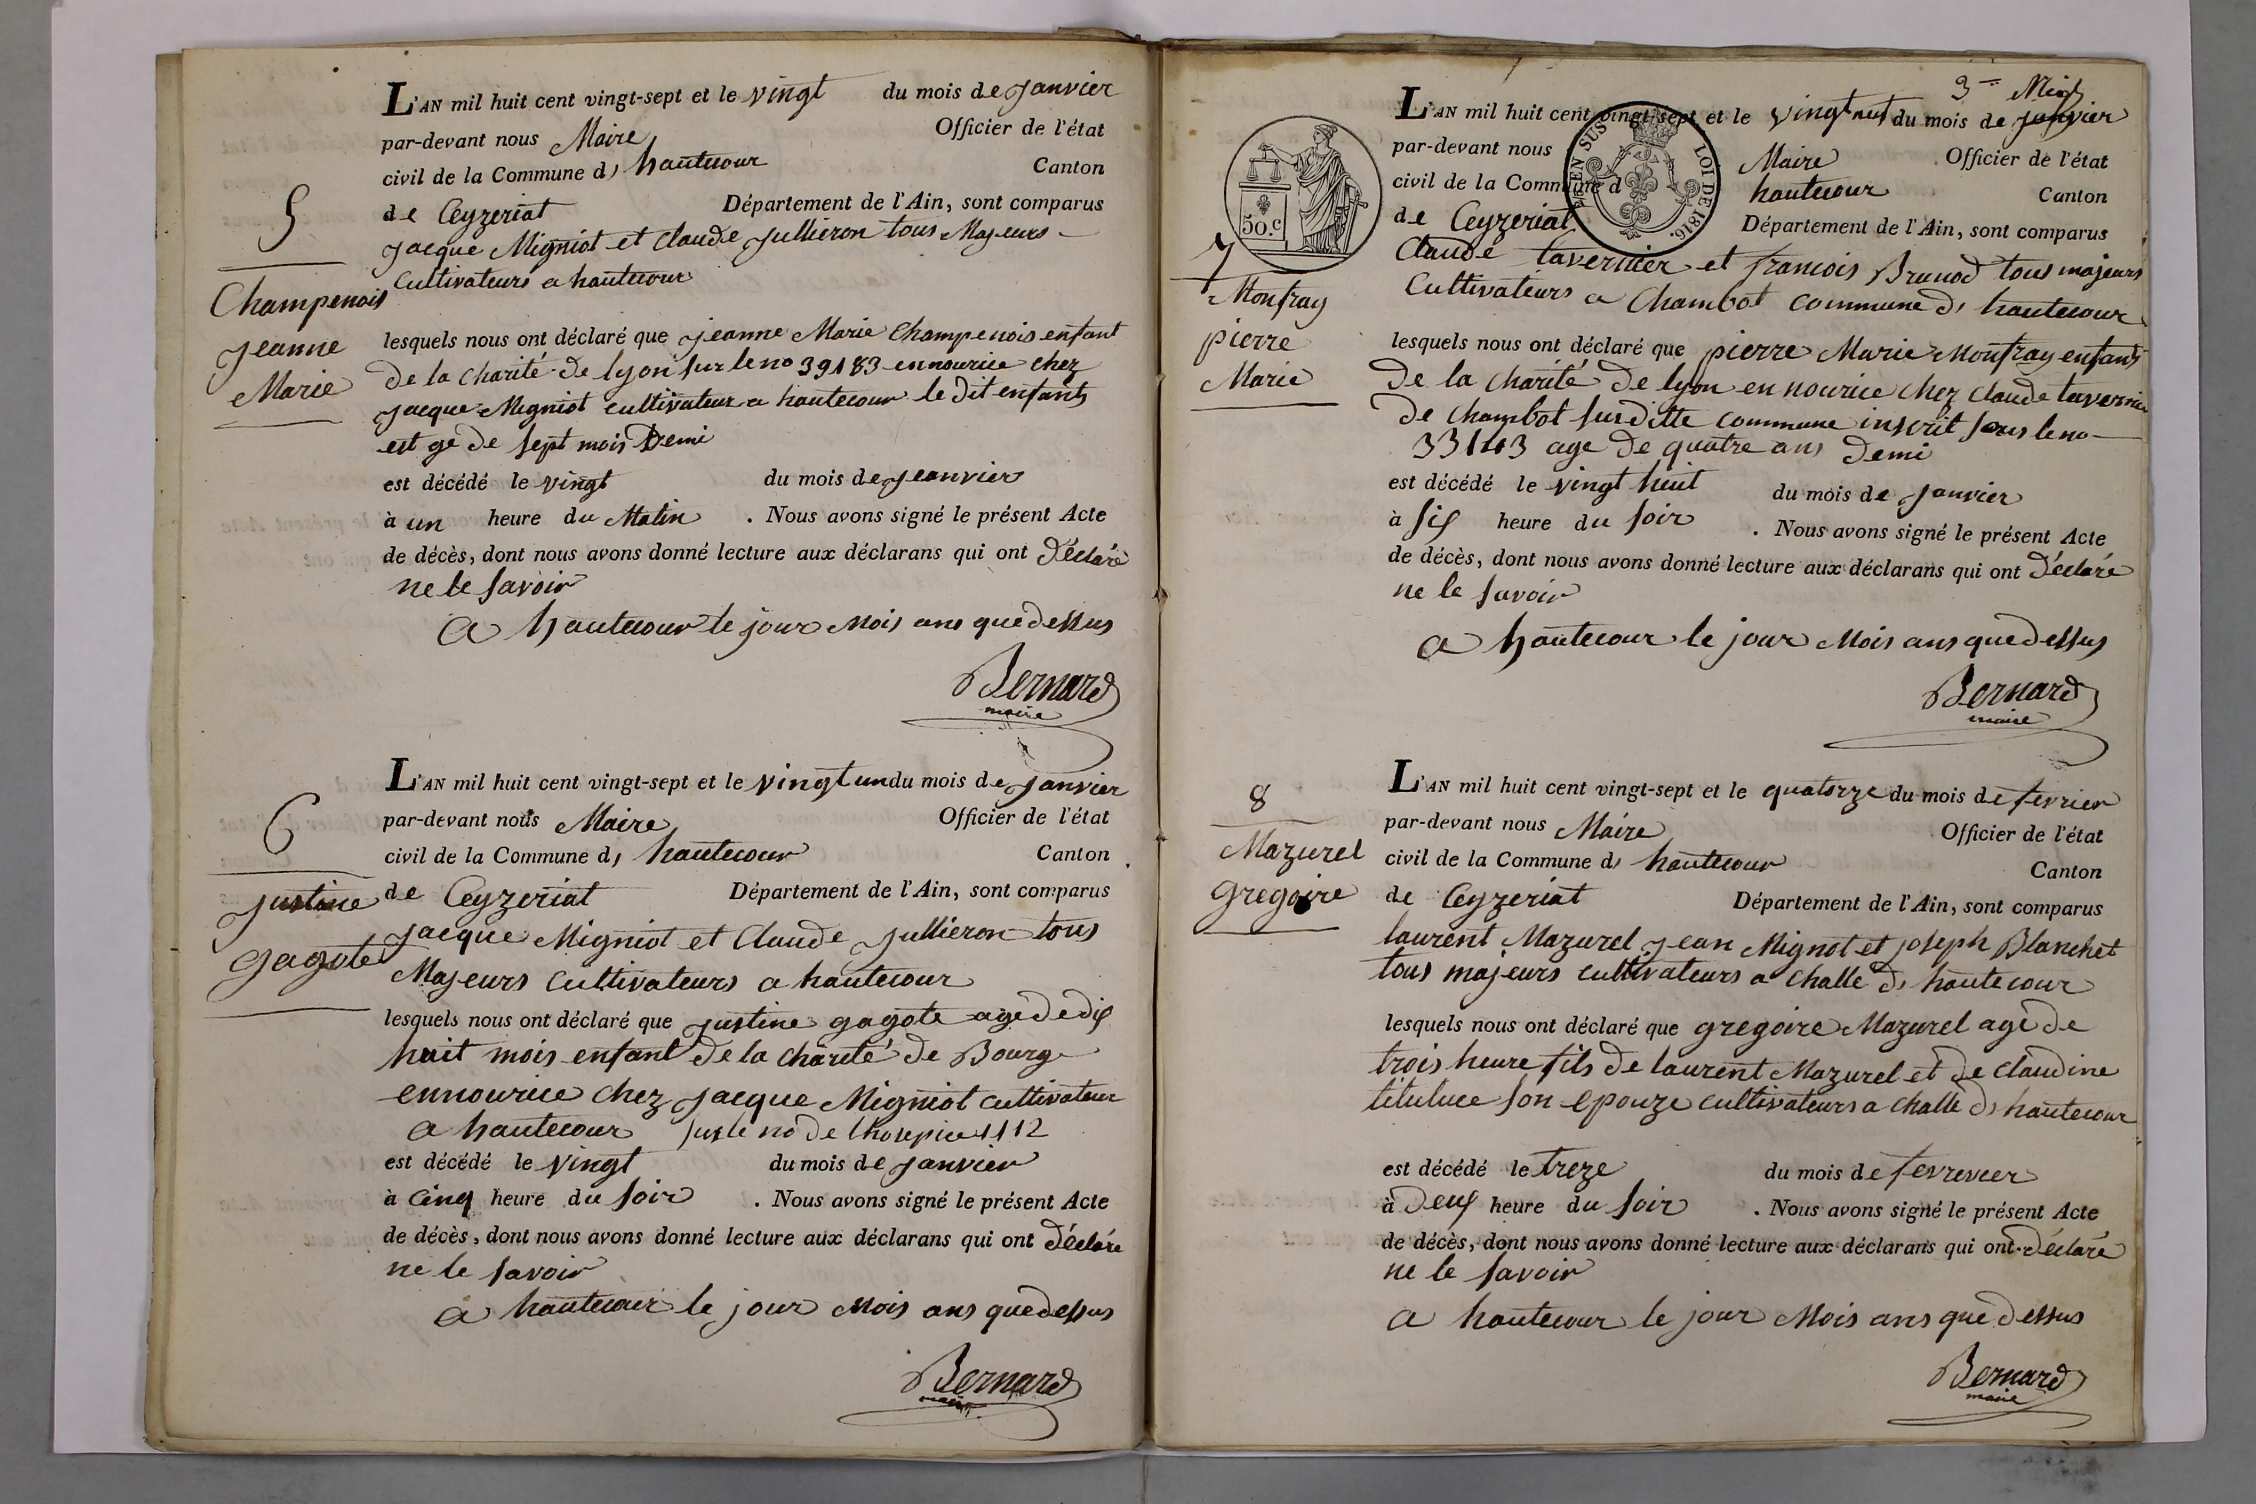 5
Champenois
Jeanne
Marie
L'AN mil huit cent vingt-sept et le vingt du mois de Janvier
par-devant nous Maire Officier de l'état
civil de la Commune d, hautecour Canton
de Ceyzeriat Département de l'Ain, sont comparus
Jacque Migniot et Claude Jullieron tous Majeurs
Cultivateurs a hautecour
lesquels nous ont déclaré que jeanne Marie Champenois enfant
de la charité de lyon sur le no 39183 en nourice chez
Jacque Migniot cultivateur a hautecour le dit enfants
est ge de sept mois Demi
est décédé le vingt du mois de Jeanvier
à un heure du Matin . Nous avons signé le présent Acte
de décès, dont nous avons donné lecture aux déclarans qui ont Déclaré
ne le savoir
a hautecour le jour Mois ans que dessus
Bernard
maire
6
Justine
gagote
L'AN mil huit cent vingt-sept et le vingt un du mois de Janvier
par-devant nous Maire Officier de l'état
civil de la Commune d, hautecour Canton
de Ceyzeriat Département de l'Ain, sont comparus
Jacque Migniot et Claude Jullieron tous
Majeurs Cultivateurs a hautecour
lesquels nous ont déclaré que justine gagote agé de dix
huit mois enfant de la charité de Bourg
en nourice chez Jacque Migniot cultivateur
a hautecour sur le no de lhospice 1112
est décédé le vingt du mois de Janvier
à Cinq heure du soir . Nous avons signé le présent Acte
de décès, dont nous avons donné lecture aux déclarans qui ont Déclaré
ne le savoir
a hautecour le jour Mois ans que dessus
Bernard
maire
3
50.c
EN SUS LOI DE 1816.
7
Monfray
pierre
Marie
L'AN mil huit cent vingt-sept et le vingt neuf du mois de janvier
par-devant nous Maire Officier de l'état
civil de la Commune d hautecour Canton
de Ceyzeriat Département de l'Ain, sont comparus
Claude tavernier et francois Brunod tous majeurs
Cultivateurs a Chambot commune d, hautecour
lesquels nous ont déclaré que pierre Marie Monfray enfants
De la charité de lyon en nourice chez Claude tavernier
de chambot susditte commune inscrit sous le no
33143 age de quatre ans demi
est décédé le vingt huit du mois de Janvier
à six heure du soir . Nous avons signé le présent Acte
de décès, dont nous avons donné lecture aux déclarans qui ont Déclaré
ne le savoir
a hautecour le jour Mois ans que dessus
Bernard
maire
8
Mazurel
gregoire
L'AN mil huit cent vingt-sept et le quatorze du mois de fevrier
par-devant nous Maire Officier de l'état
civil de la Commune d, hautecour Canton
de Ceyzeriat Département de l'Ain, sont comparus
laurent Mazurel jean Mignot et joseph Blanchet
tous majeurs cultivateurs a challe d, hautecour
lesquels nous ont déclaré que gregoire Mazurel agé de
trois heure fils de laurent Mazurel et de Claudine
tituluce son epouze cultivateurs a challe d, hautecour
est décédé le treze du mois de fevrevier
à Deux heure du soir . Nous avons signé le présent Acte
de décès, dont nous avons donné lecture aux déclarans qui ont Déclaré
ne le savoir
a hautecour le jour Mois ans que dessus
Bernard
maire